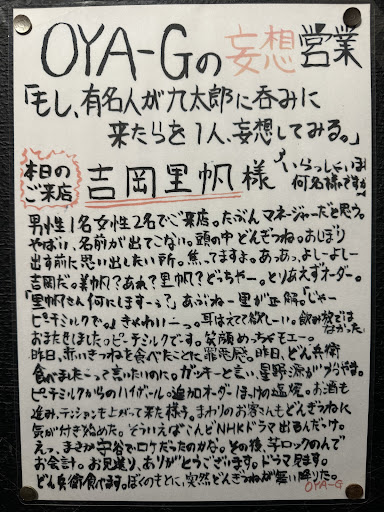 OYA-Gの妄想営業
「もし、有名人が九太郎に呑みに
来たらを1人、妄想してみる。」
本日の
ご来店
吉岡里帆様
いらっしゃいませ
何名様ですか
男性1名女性2名でご来店。たぶんマネージャーだと思う。
やばい、名前が出てこない。頭の中どんぎつね。おしぼり
出す前に思い出したい所。焦ってますよ。あっあっ、よしーよしー
吉岡だ。美帆?あれ?里帆?どっちゃー。とりあえずオーダー。
「里帆さん何にしますーぅ?」あぶねー里が正解。「じゃー
ピーチミルクで。」きゃわいーっ。耳はえてて欲しーい。飲み放では
なかった。
おまたせしました。ピーチミルクです。笑顔めっちゃモエー。
昨日、赤いきつねを食べたことに罪悪感。昨日、どん兵衛
食べましたこって言いたいのに。ガッキーと言い、星野源がうらやま。
ピーチミルクからのハイボール。追加オーダーほっけの塩焼。お酒も
進み、テンションも上がって来た様子。まわりのお客さんもどんぎつねに
気が付き始めた。そういえばこんどNHKドラマ出るんだっけ。
えっ、まさか守谷でロケだったのかな。その後、芋ロックのんで
お会計。お見送り、ありがとうございます。ドラマ見ます。
どん兵衛食べます。ぼくのもとに、突然どんぎつねが舞い降りた。
OYA-G